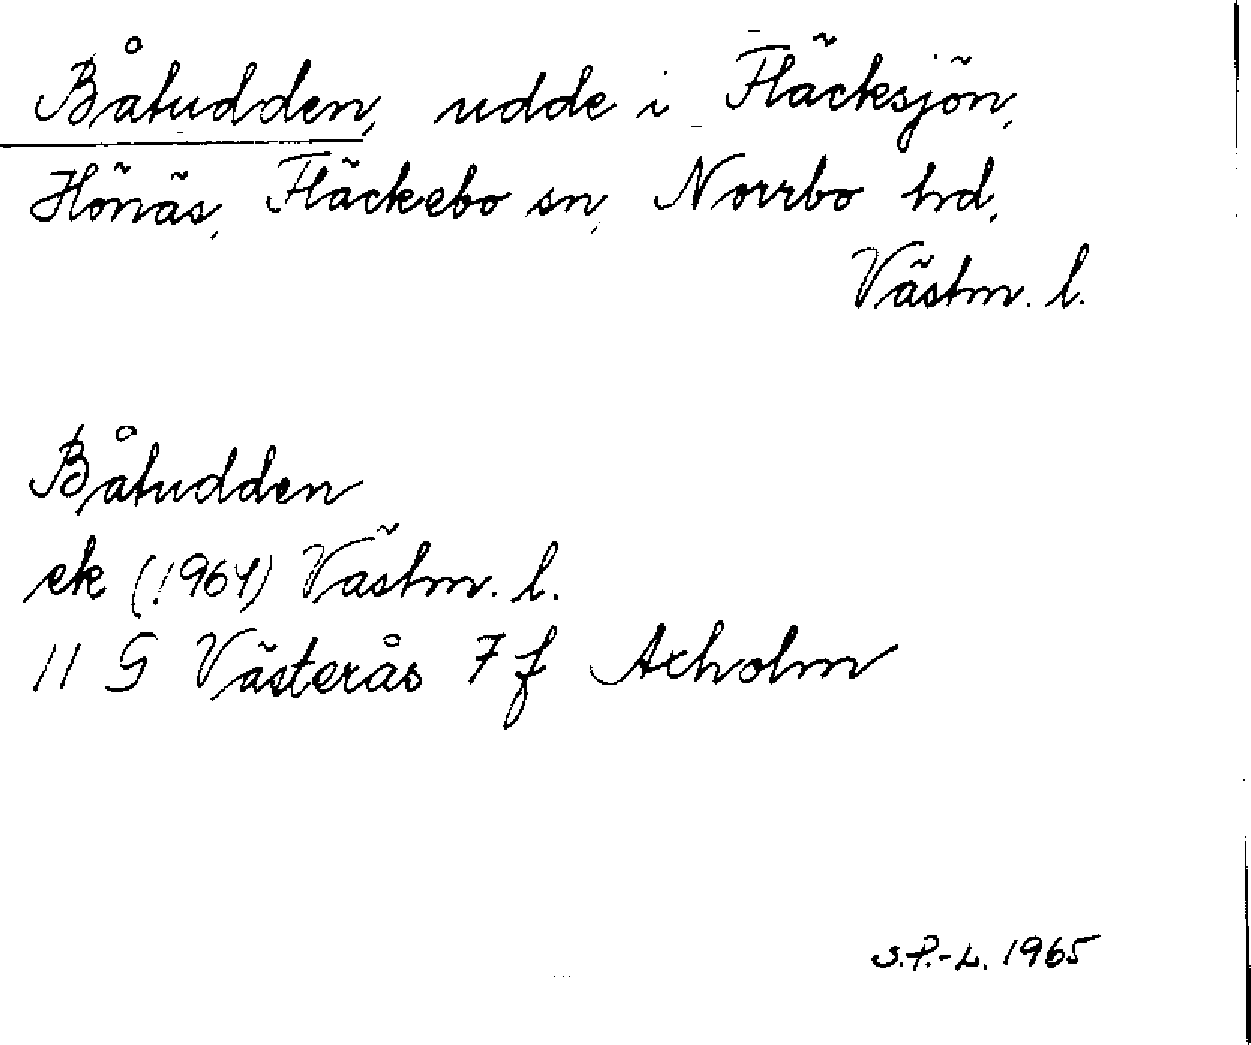 Båtudden, udde i Fläcksjön,
Hönäs, Fläckebo sn, Norrbo hd,
Västm. l.
Båtudden
ek (1964) Västm. l.
11 G Västerås 7 f Axholm
S.P.-L. 1965